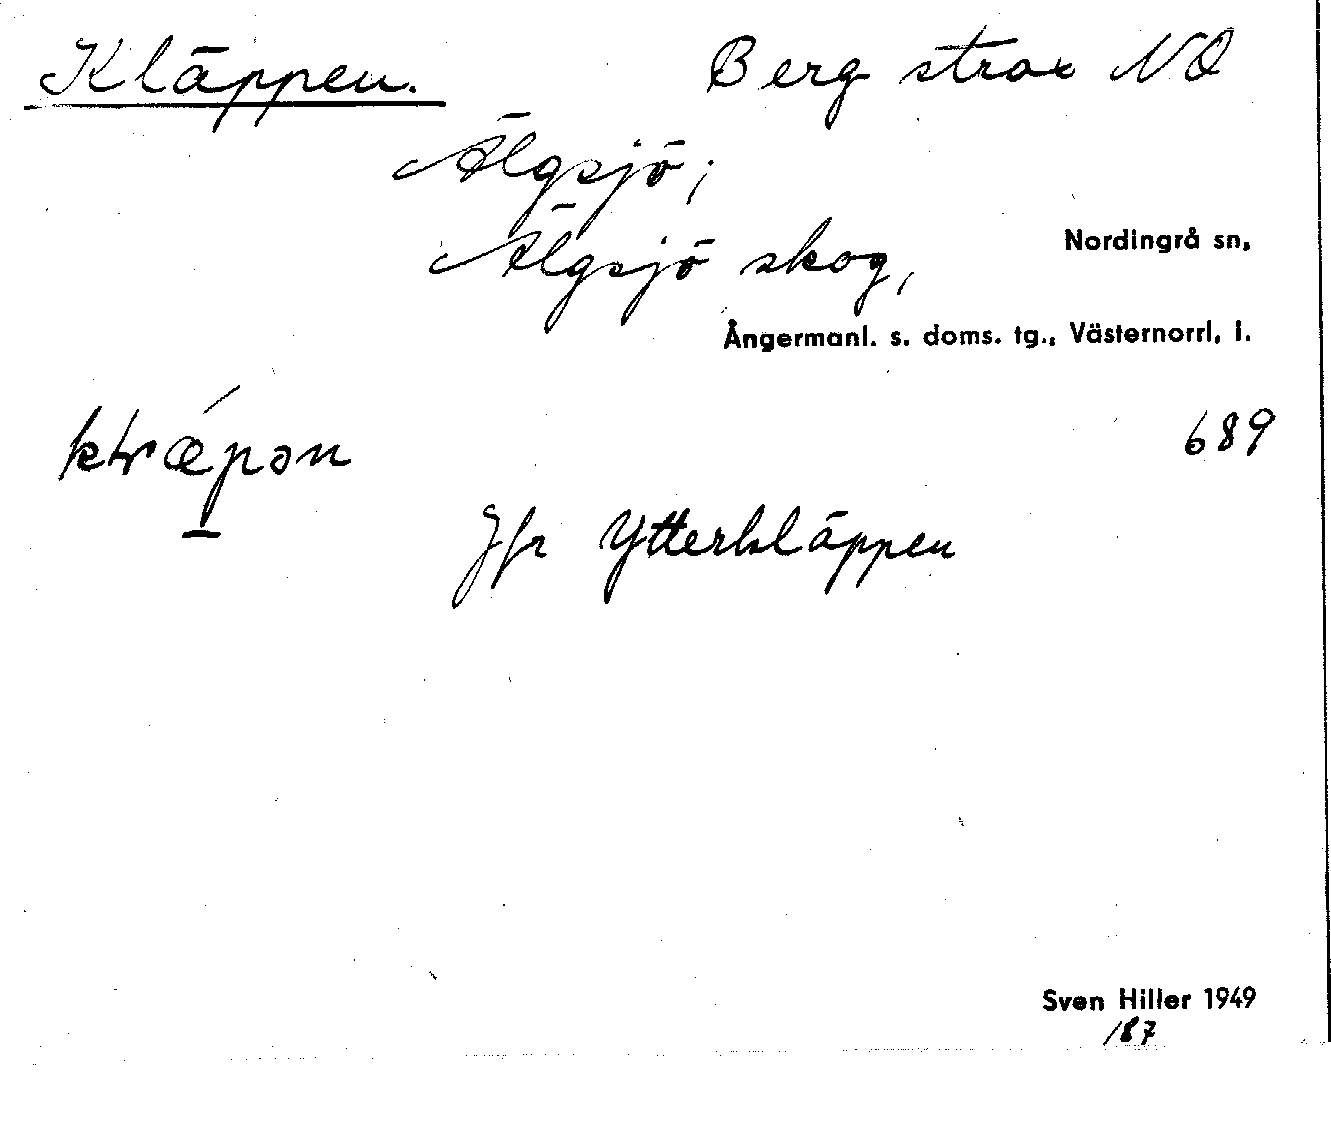 Kläppen. Berg strax NO
Älgsjö;
Älgsjö skog,
Nordingrå sn,
Ångermanl. s. doms. tg., Västernorrl. l.
689
Jfr Ytterkläppen
Sven Hiller 1949
187